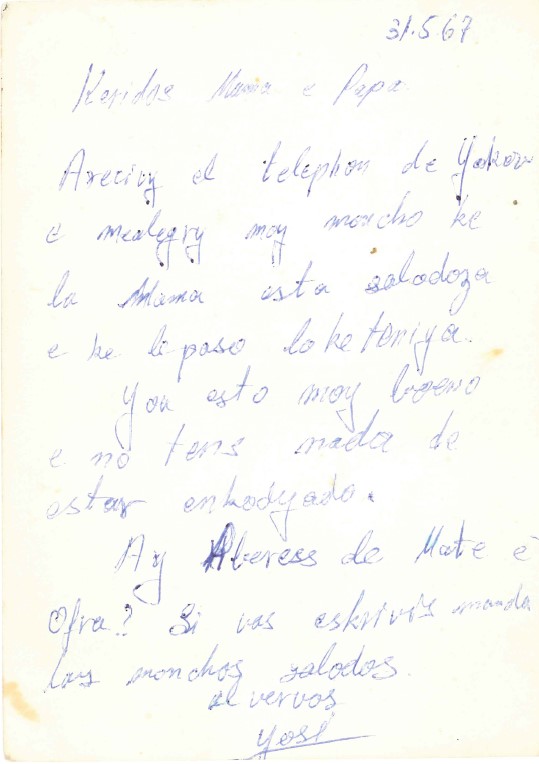 31.5.67
Keridos Mama e Papa
Arecivy el telephon de Yakov
e mealegry moy moncho ke
la Mama esta salodoza
e ke le paso lo ke teniya.
You esto moy boeno
e no tens nada de
estar enkodyado.
Ay Aberess de Mate e
Ofra? Si vos eskrivis manda
las monchos salodos.
al vervos
Yosi